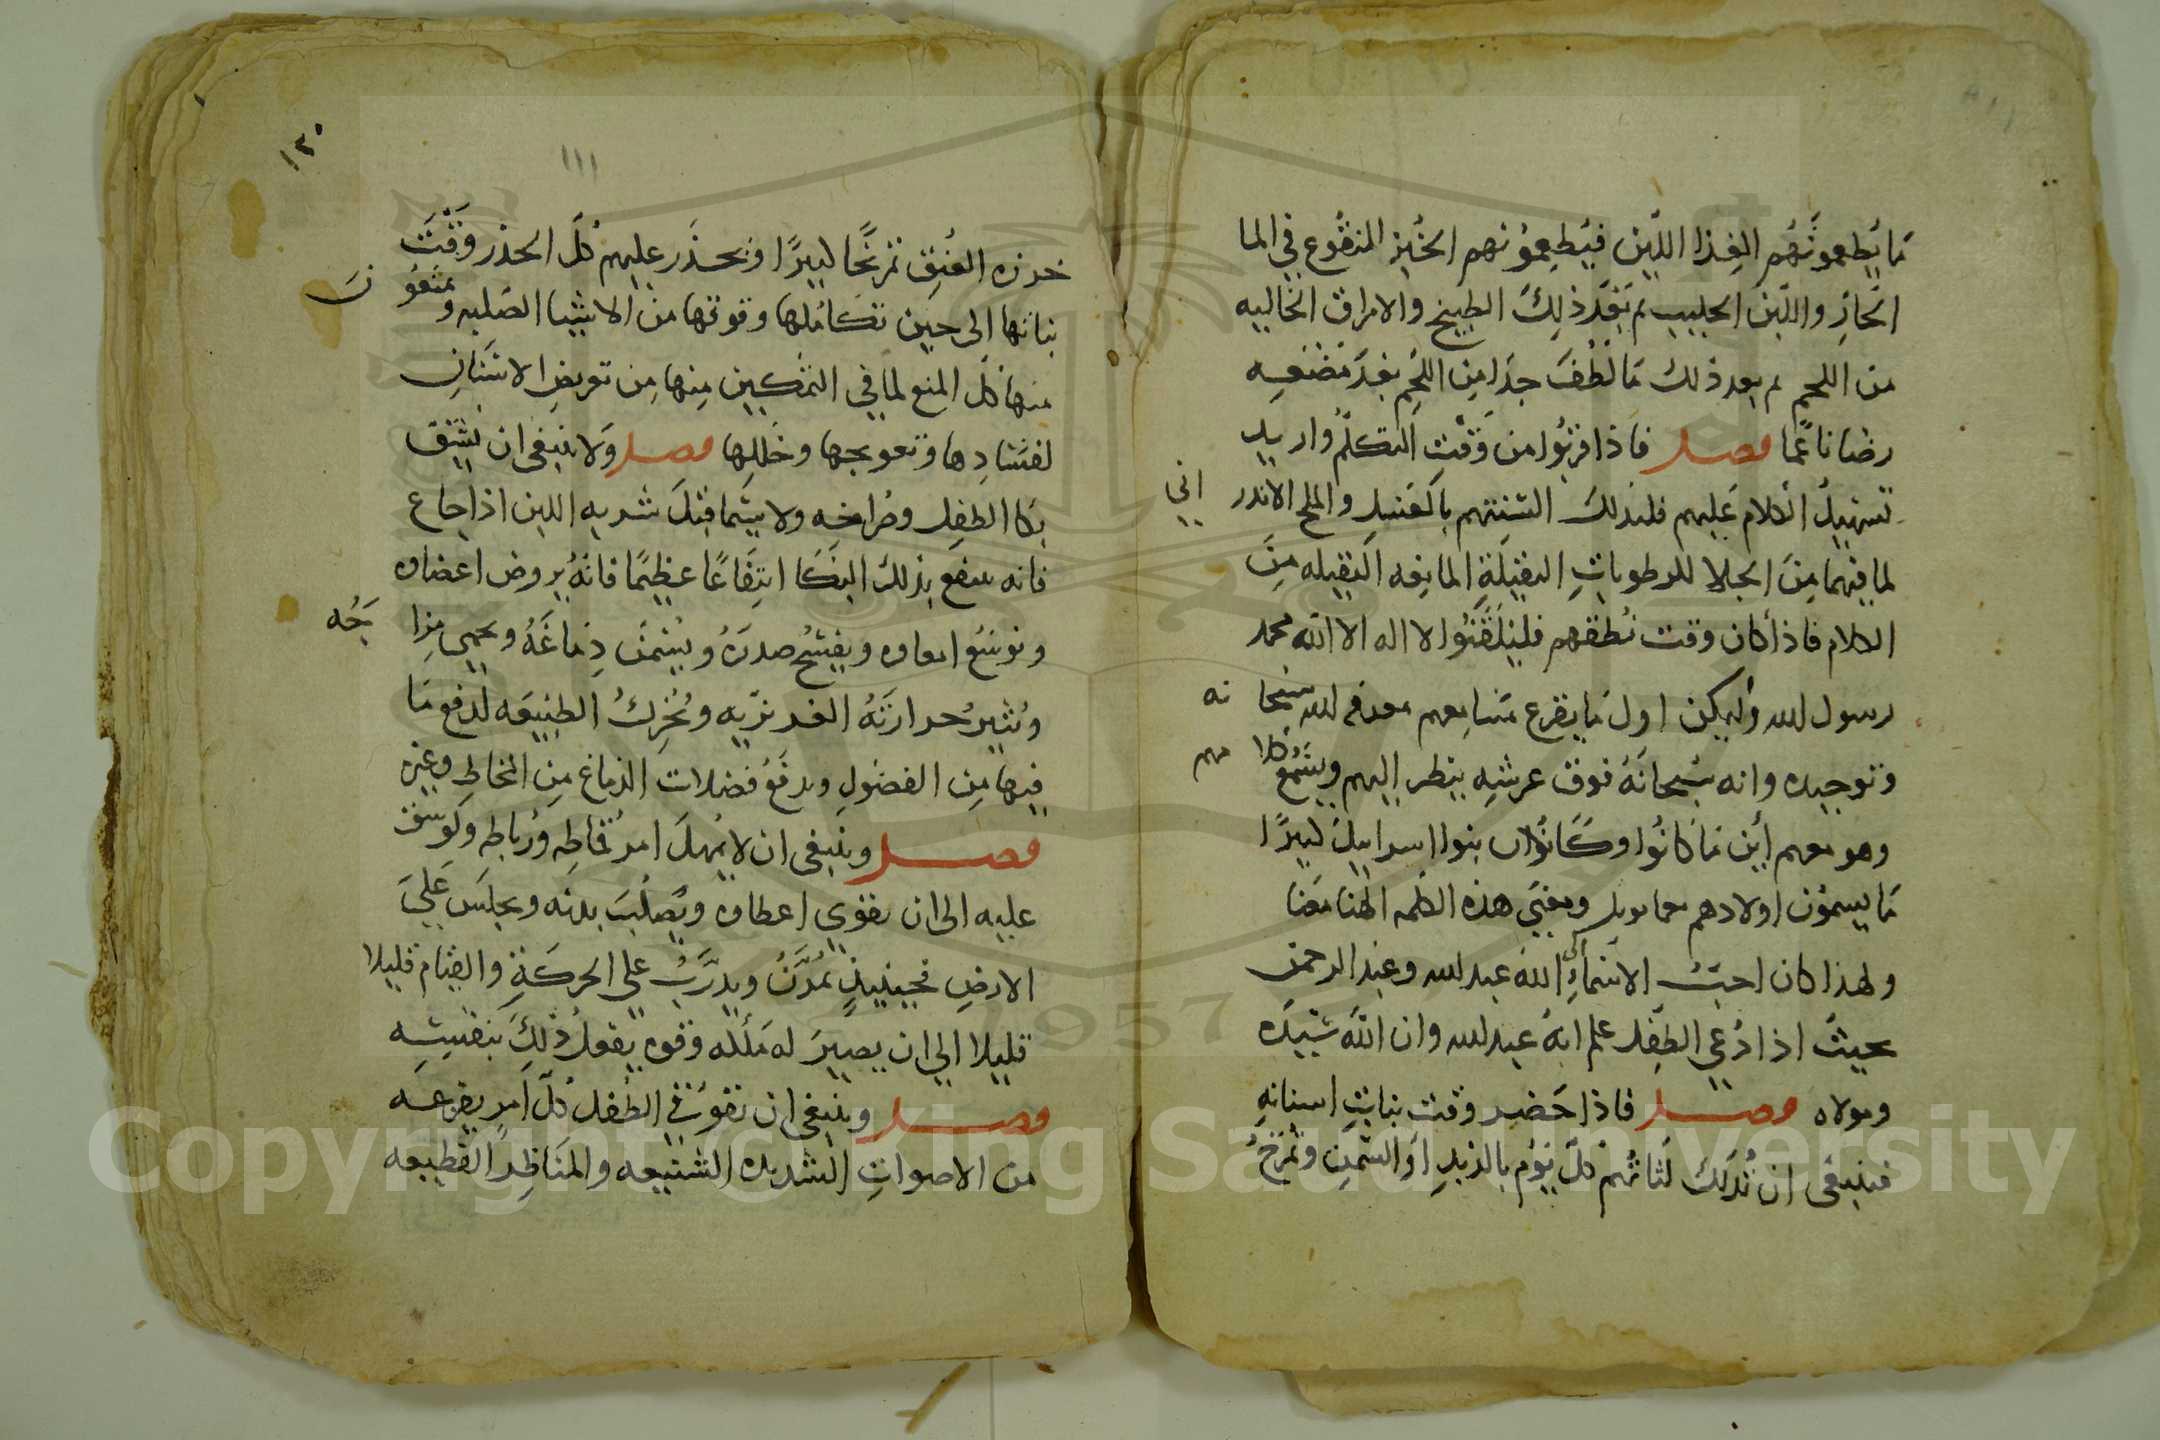 ما يُطعمونهم الغذا اللين فيطعمونهم الخبز المنقوع في الما
الحار واللبن الحليب ثم بعد ذلك الطبيخ والامراق الخاليه
من اللحم ثم بعد ذلك ما لطف جدا من اللحم بعد مضغه
رضا ناعما فصل فاذا قربوا من وقت التكلم واريد
تسهيل الكلام عليهم فليدلك السنتهم بالعسل والملح الاندرانى
لما فيهما من الجلا للرطوبات الثقيلة المانعه الثقيله من
الكلام فاذا كان وقت نطقهم فليلقنوا لا اله الا الله محمد
رسول الله وليكن اول ما يقرع مسامعهم معرفه الله سبحانه
وتوحيده وانه سبحانه فوق عرشه ينظر اليهم ويسمع كلامهم
وهو معهم اين ما كانوا وكانوا بنوا اسراييل كثيرًا
ما يسمون اولادهم عمانويل ومعنى هذه الكلمه الهنا معنا
ولهذا كان احب الاسماء الى الله عبد الله وعبد الرحمن
بحيث اذا دعي الطفل علم انه عبد الله وان الله سيده
ومولاه فصل فاذا حضر وقت نبات اسنانه
فينبغى ان تدلك لثاتهم كل يوم بالزبد او السمن وتمرخ
١٢٠
١١١
خرزه العنق تمريخًا كثيرًا ويحذر عليهم كل الحذر وقت
نباتها الى حين تكاملها وقوتها من الاشيا الصلبه ويمنعون
منها كل المنع لما في التمكين منها من تعريض الاسنان
لفسادها وتعويجها وخللها فصل ولا ينبغى ان يشق
بكا الطفل وصراخه ولا سيما قبل شربه اللبن اذا جاع
فانه ينتفع بذلك البكا انتفاعًا عظيمًا فانه يروض اعضاه
ويوسع امعاه ويفسح صدره ويسخن دماغه ويحمي مزاجه
ويثير حرارته الغريزيه ويحرك الطبيعه لدفع ما
فيها من الفضول ويدفع فضلات الدماغ من المخاط وغيره
فصل وينبغى ان لا يهمل امر قماطه ورباطه ولو شق
عليه الى ان يقوى اعضاه ويصلب بدنه ويجلس على
الارض فحينيذ يمرن ويدرب على الحركة والقيام قليلا
قليلا الى ان يصير له ملكه وقوه يفعل ذلك بنفسه
فصل وينبغى ان يوقى الطفل كل امر يفزعه
من الاصوات الشديده الشنيعه والمناظر الفظيعه
Copyright © King Saud University
1957